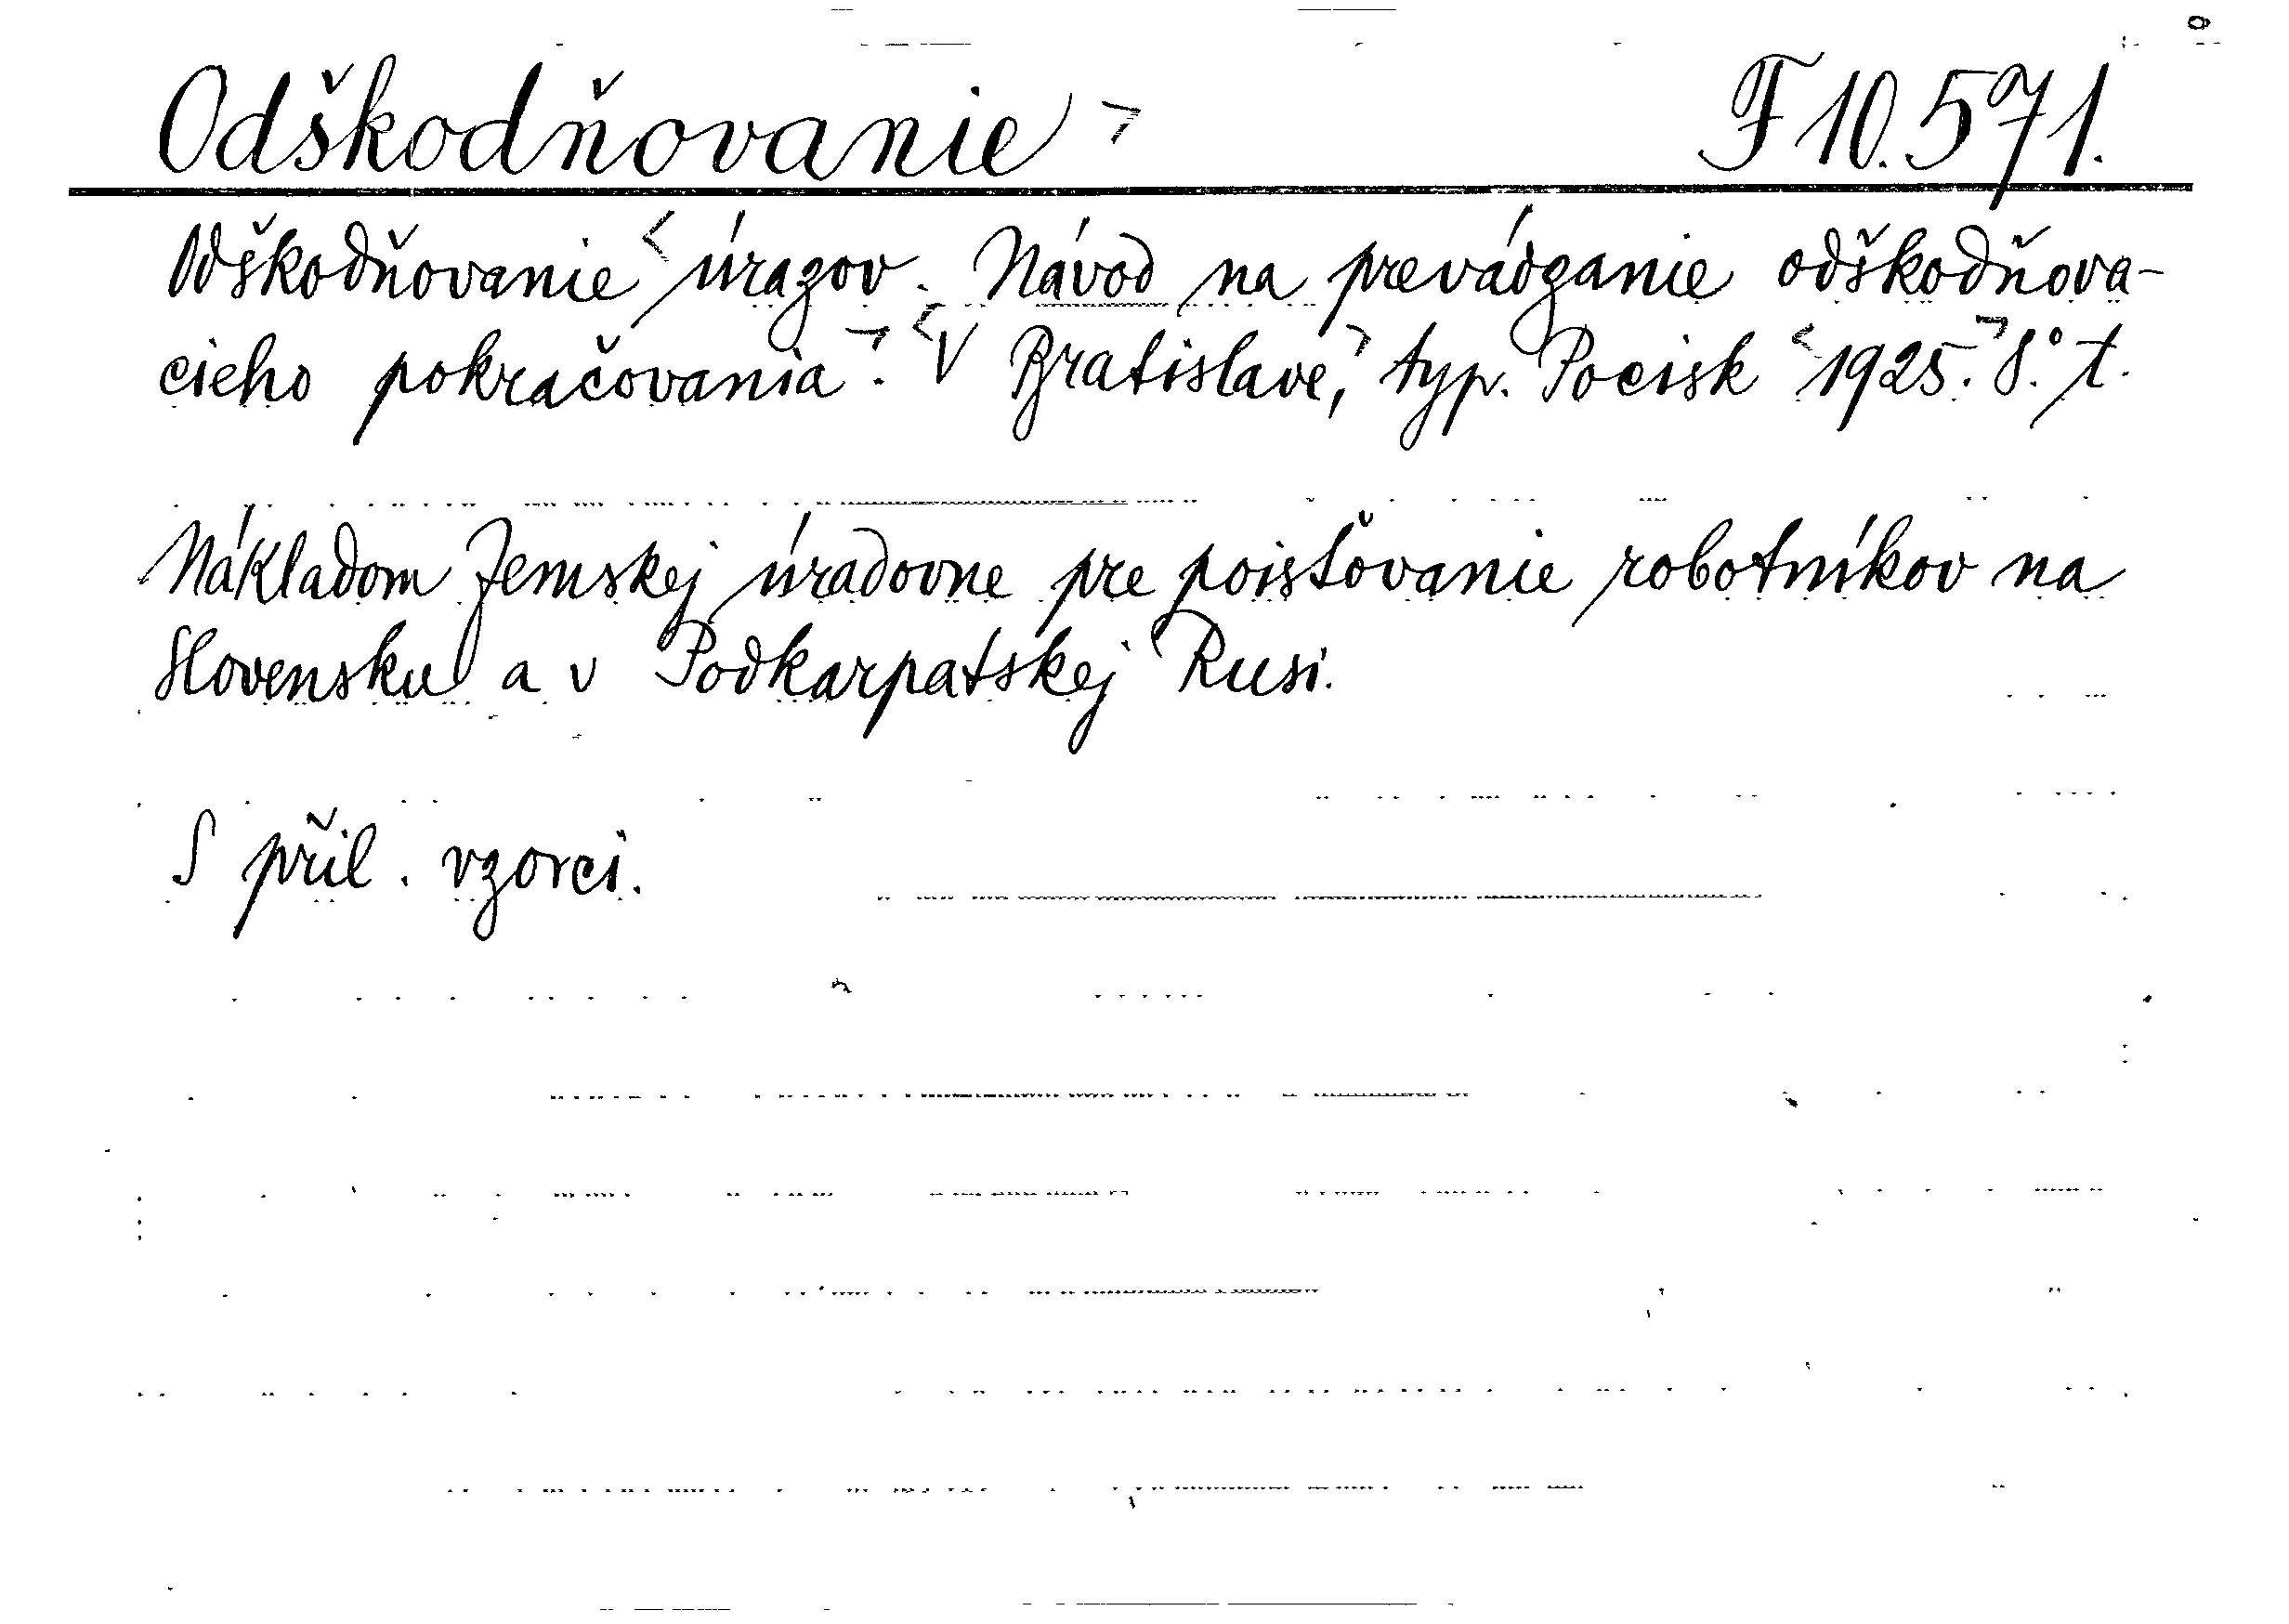 Odškodňovanie F 10.571.
Odškodňovanie úrazov. Návod na prevádzanie odškodňova-
cieho pokračovania. V Bratislave, typ. Pocisk 1925. 8.° t.
Nákladom Zemskej úradovne pre poisťovanie robotníkov na
Slovensku a v Podkarpatskej Rusi.
S příl. vzorci.